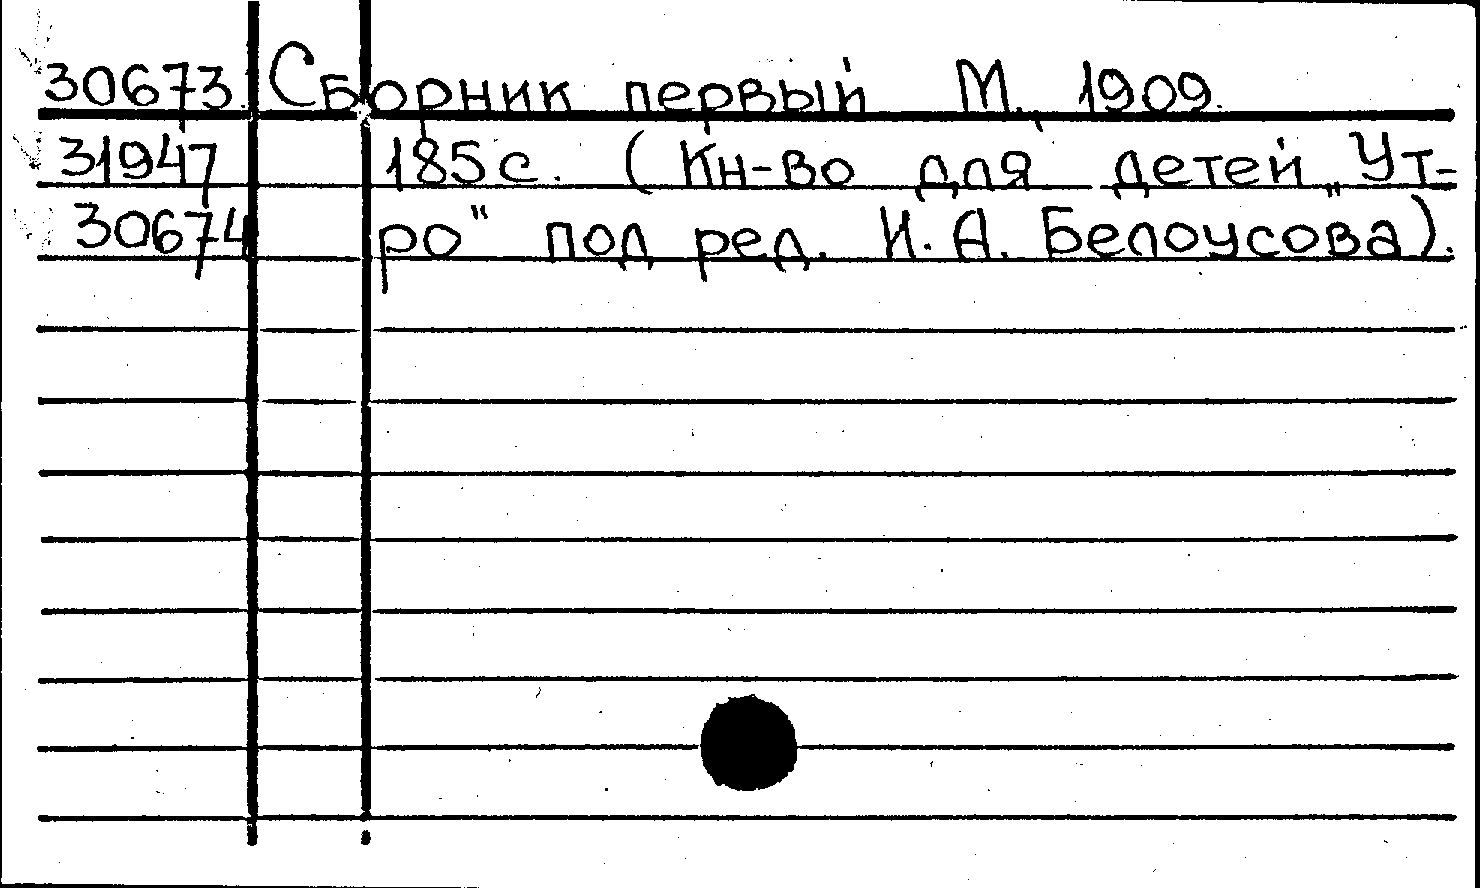 30673 Сборник первый М., 1909.
31947 185с. (Кн-во для детей „Ут-
30674 ро" под ред. И. А. Белоусова).